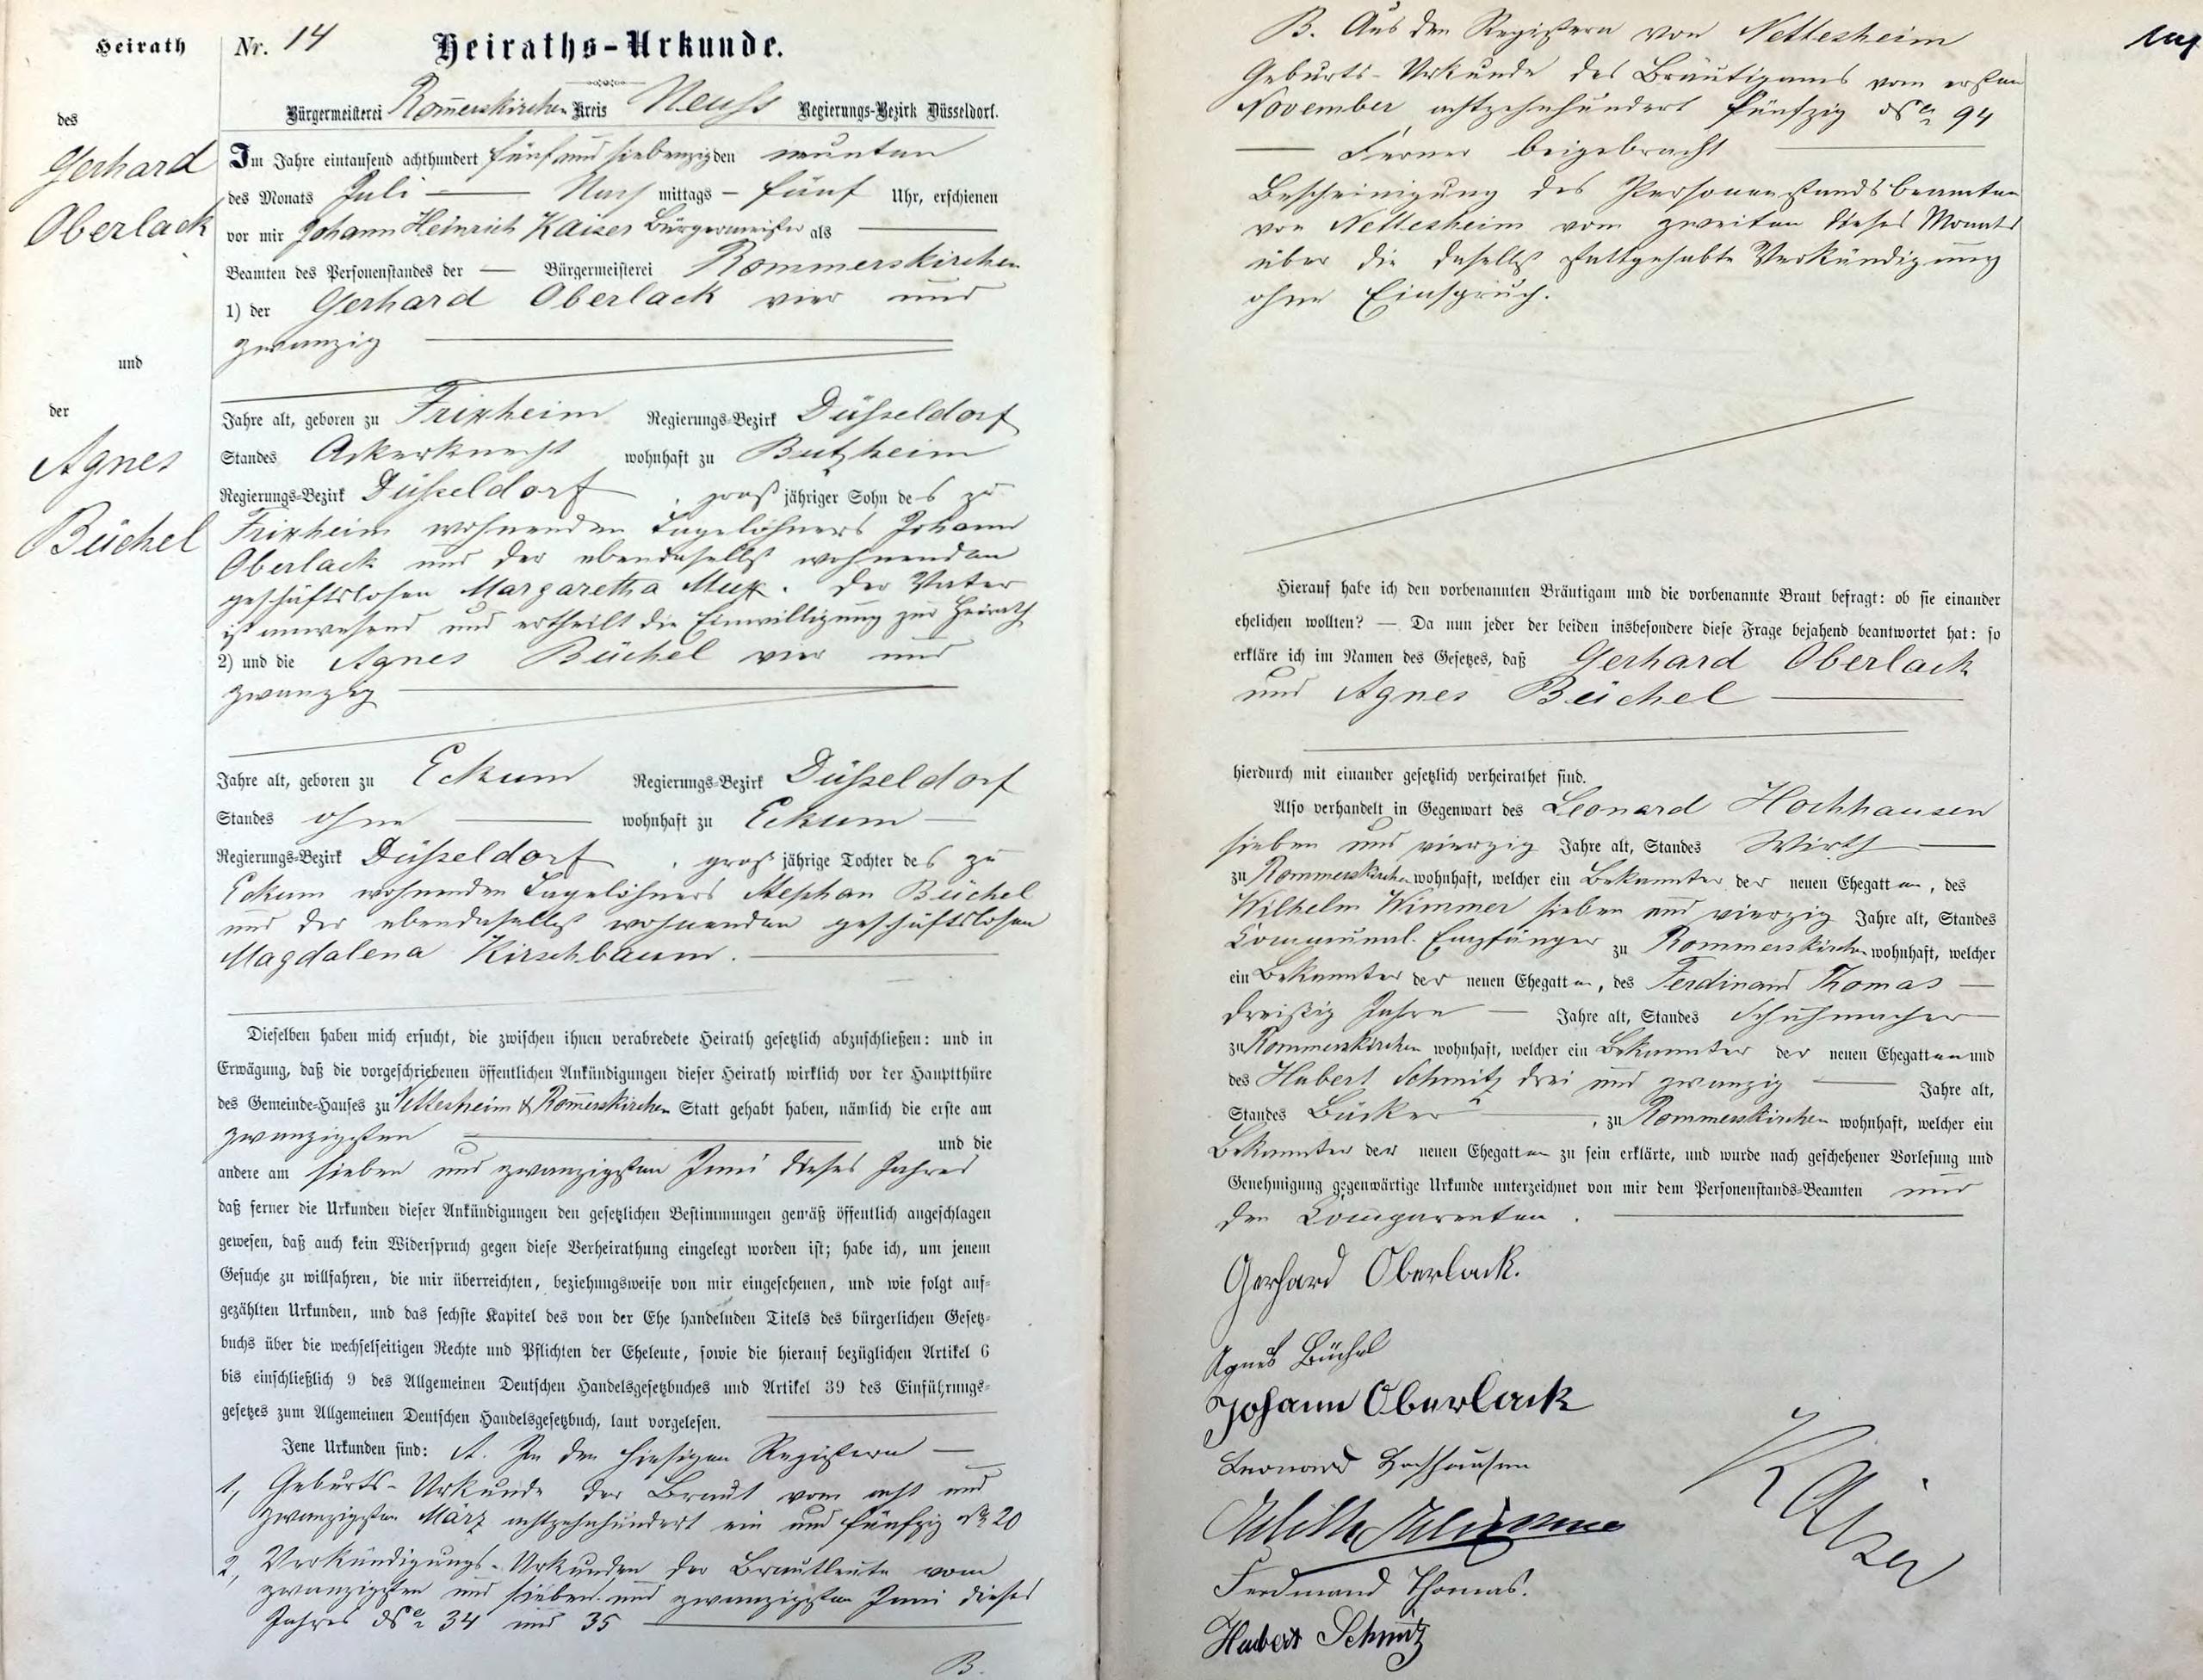 Heirath
des
Gerhard
Oberlack
und
der
Agnes
Büchel
Nr. 14 Heiraths-Urkunde.
Bürgermeisterei Rom̄erskirchen Kreis Neuss Regierungs-Bezirk Düsseldorf.
Im Jahre eintausend achthundert fünf und siebenzig den neunten
des Monats Juli — Nach mittags – fünf Uhr, erschienen
vor mir Johann Heinrich Kaiser Bürgermeister als —
Beamten des Personenstandes der — Bürgermeisterei Rommerskirchen
1) der Gerhard Oberlack vier und
zwanzig —
Jahre alt, geboren zu Frixheim Regierungs-Bezirk Düsseldorf
Standes Ackerknecht wohnhaft zu Butzheim
Regierungs-Bezirk Düsseldorf, gross jähriger Sohn des zu
Frixheim wohnenden Tagelöhners Johann
Oberlack und der ebendaselbst wohnenden
geschäftslosen Margaretha Muff. Der Vater
ist anwesend und ertheilt die Einwilligung zur Heirath
2) und die Agnes Büchel vier und
zwanzig —
Jahre alt, geboren zu Eckum Regierungs-Bezirk Düsseldorf
Standes ohne — wohnhaft zu Eckum —
Regierungs-Bezirk Düsseldorf, gross jährige Tochter des zu
Eckum wohnenden Tagelöhners Stephan Büchel
und der ebendaselbst wohnenden geschäftslosen
Magdalena Kirschbaum. —
Dieselben haben mich ersucht, die zwischen ihnen verabredete Heirath gesetzlich abzuschließen: und in
Erwägung, daß die vorgeschriebenen öffentlichen Ankündigungen dieser Heirath wirklich vor der Hauptthüre
des Gemeinde-Hauses zu Nettesheim & Rom̄erskirchen Statt gehabt haben, nämlich die erste am
zwanzigsten — und die
andere am sieben und zwanzigsten Juni dieses Jahres
daß ferner die Urkunden dieser Ankündigungen den gesetzlichen Bestimmungen gemäß öffentlich angeschlagen
gewesen, daß auch kein Widerspruch gegen diese Verheirathung eingelegt worden ist; habe ich, um jenem
Gesuche zu willfahren, die mir überreichten, beziehungsweise von mir eingesehenen, und wie folgt auf-
gezählten Urkunden, und das sechste Kapitel des von der Ehe handelnden Titels des bürgerlichen Gesetz-
buchs über die wechselseitigen Rechte und Pflichten der Eheleute, sowie die hierauf bezüglichen Artikel 6
bis einschließlich 9 des Allgemeinen Deutschen Handelsgesetzbuches und Artikel 39 des Einführungs-
gesetzes zum Allgemeinen Deutschen Handelsgesetzbuch, laut vorgelesen. —
Jene Urkunden sind: A. In den hiesigen Registern —
1, Geburts-Urkunde der Braut vom acht und
zwanzigsten März achtzehnhundert ein und fünfzig No 20
2, Verkündigungs-Urkunden der Brautleute vom
zwanzigsten und sieben und zwanzigsten Juni dieses
Jahres 34 und 35 —
B.
B. Aus den Registern von Nettesheim
Geburts-Urkunde des Bräutigams vom ersten
November achtzehnhundert fünfzig 94
— Ferner beigebracht —
Bescheinigung des Personenstandsbeamten
von Nettesheim vom zweiten dieses Monats
über die daselbst stattgehabte Verkündigung
ohne Einspruch.
Hierauf habe ich den vorbenannten Bräutigam und die vorbenannte Braut befragt: ob sie einander
ehelichen wollten? — Da nun jeder der beiden insbesondere diese Frage bejahend beantwortet hat: so
erkläre ich im Namen des Gesetzes, daß Gerhard Oberlack
und Agnes Büchel —
hierdurch mit einander gesetzlich verheirathet sind.
Also verhandelt in Gegenwart des Leonard Hochhausen
sieben und vierzig Jahre alt, Standes Wirth —
zu Rommerskirchen wohnhaft, welcher ein Bekannter der neuen Ehegatten, des
Wilhelm Wimmer sieben und vierzig Jahre alt, Standes
Communal-Empfänger zu Rommerskirchen wohnhaft, welcher
ein Bekannter der neuen Ehegatten, des Ferdinand Thomas —
dreißig Jahre — Jahre alt, Standes Schuhmacher
zu Rommerskirchen wohnhaft, welcher ein Bekannter der neuen Ehegatten und
des Hubert Schmitz drei und zwanzig — Jahre alt,
Standes Bäcker —, zu Rommerskirchen wohnhaft, welcher ein
Bekannter der neuen Ehegatten zu sein erklärte, und wurde nach geschehener Vorlesung und
Genehmigung gegenwärtige Urkunde unterzeichnet von mir dem Personenstands-Beamten und
den Comparenten. —
Gerhard Oberlack.
Agnes Büchel
Johann Oberlack
Leonard Hochhausen
Kaiser
Ferdinand Thomas.
Hubert Schmitz